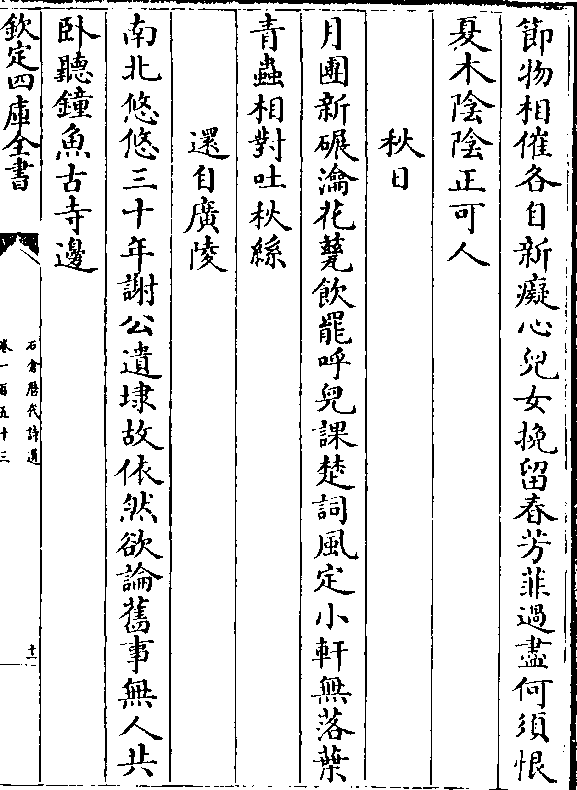 節物相催各自新癡心兒女挽留春芳菲過盡何須恨
夏木陰陰正可人
秋日
月團新碾瀹花甆飲罷呼兒課楚詞風定小軒無落葉
青蟲相對吐秋絲
還自廣陵
南北悠悠三十年謝公遺埭故依然欲論舊事無人共
卧聽鐘魚古寺邊
欽定四庫全書
石倉歴代詩選
卷一百五十三
十二